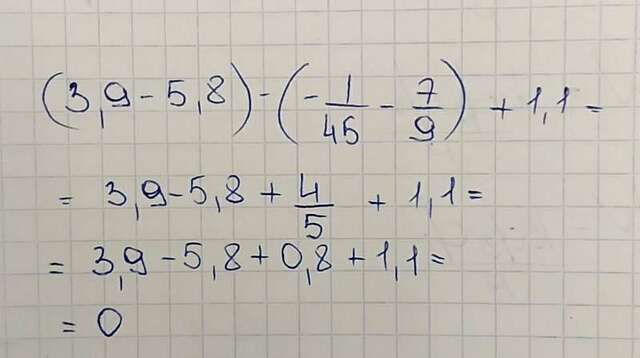 (3,9 - 5,8) - (- 1/45 - 7/9) + 1,1 =
= 3,9 - 5,8 + 4/5 + 1,1 =
= 3,9 - 5,8 + 0,8 + 1,1 =
= 0